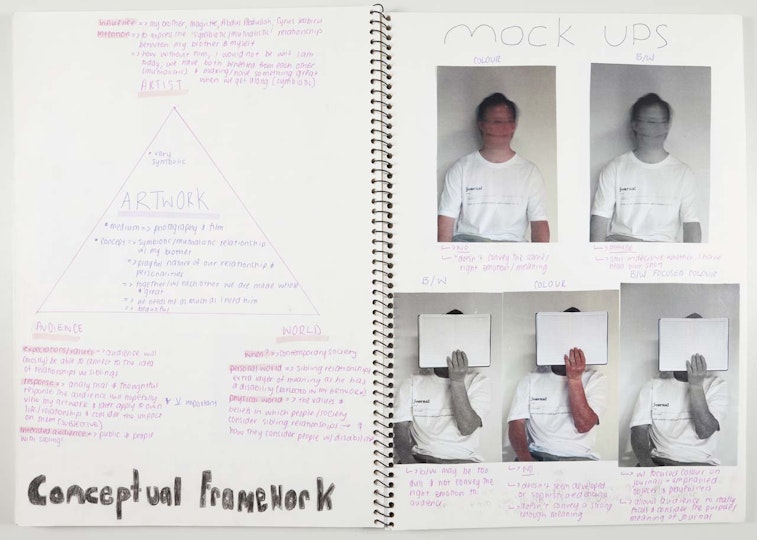 influence => my brother, Magritte, Abdul Abdullah,
intention => to express the 'symbiotic/mutualistic' relationship
between my brother & myself
=> how without him, I would not be who I am
today, we have both benefited from each other
(mutualistic) & making/have something great
when we get along (symbiotic)
ARTIST
* very
symbolic
ARTWORK
* medium => photography & film
* concept => symbiotic/mutualistic relationship
w/ my brother
=> playful nature of our relationship &
personalities
=> together/w/ each other we are made whole
& great
=> he needs me as much as I need him
=> beautiful
AUDIENCE
expectations/values => audience will
(mostly) be able to the idea
of relationships w/ siblings
response => analytical & thoughtful
response. The audience will hopefully
view my artwork & apply to own
life/relationships & consider the impact
on them (subjective)
important
intended audience => public & people
with siblings
WORLD
when? => contemporary society
personal world => sibling relationships
extra layer of meaning as he has
a disability (reflected in my ARTWORK)
physical world => the values &
beliefs in which people/society
consider sibling relationships &
how they consider people w/ disabilities
Conceptual Framework
MOCK UPS
COLOUR
B/W
Journal
Journal
NO
"doesn't convey the same/
right emotion/meaning
maybe
B/W
COLOUR
B/W FOCUSED COLOUR
Journal
Journal
Journal
b/w may be too
dull & not convey the
right emotion to
audience.
NO
doesn't seem developed
or sophisticated enough
doesn't convey a strong
enough meaning
w/ focused colour on
journal = emphasised
objects & playfulness
allows audience to really
focus & consider the purpose/
meaning of journal